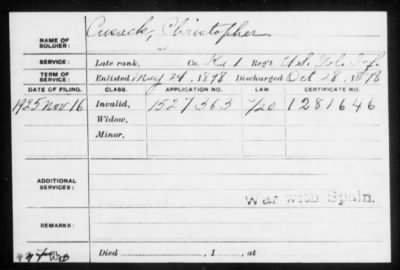 NAME OF SOLDIER: Cusack, Christopher
SERVICE: Late rank, Co. K, 1 Reg't U.S. Vol. Inf.
TERM OF SERVICE: Enlisted May 24, 1898 Discharged Oct 28, 1898
DATE OF FILING. CLASS. APPLICATION NO. LAW CERTIFICATE NO.
1925 Nov. 16 Invalid, 1527363 7/20 1281646
Widow,
Minor,
ADDITIONAL SERVICES:
War with Spain.
REMARKS:
Died , 1 , at